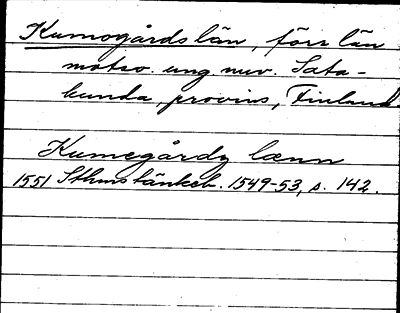 Kumogårds län, förr län
motsv. ung nuv. Sata-
kunda, provins, Finland
Kumegårdz lænn
1551 Sthms tänkeb. 1549-53, s. 142.